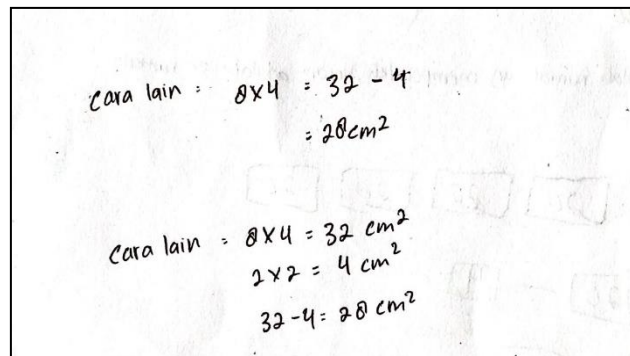 Cara lain : 8x4 = 32 - 4
= 28cm²
Cara lain : 8x4 = 32 cm²
2x2 = 4 cm²
32-4 = 28 cm²